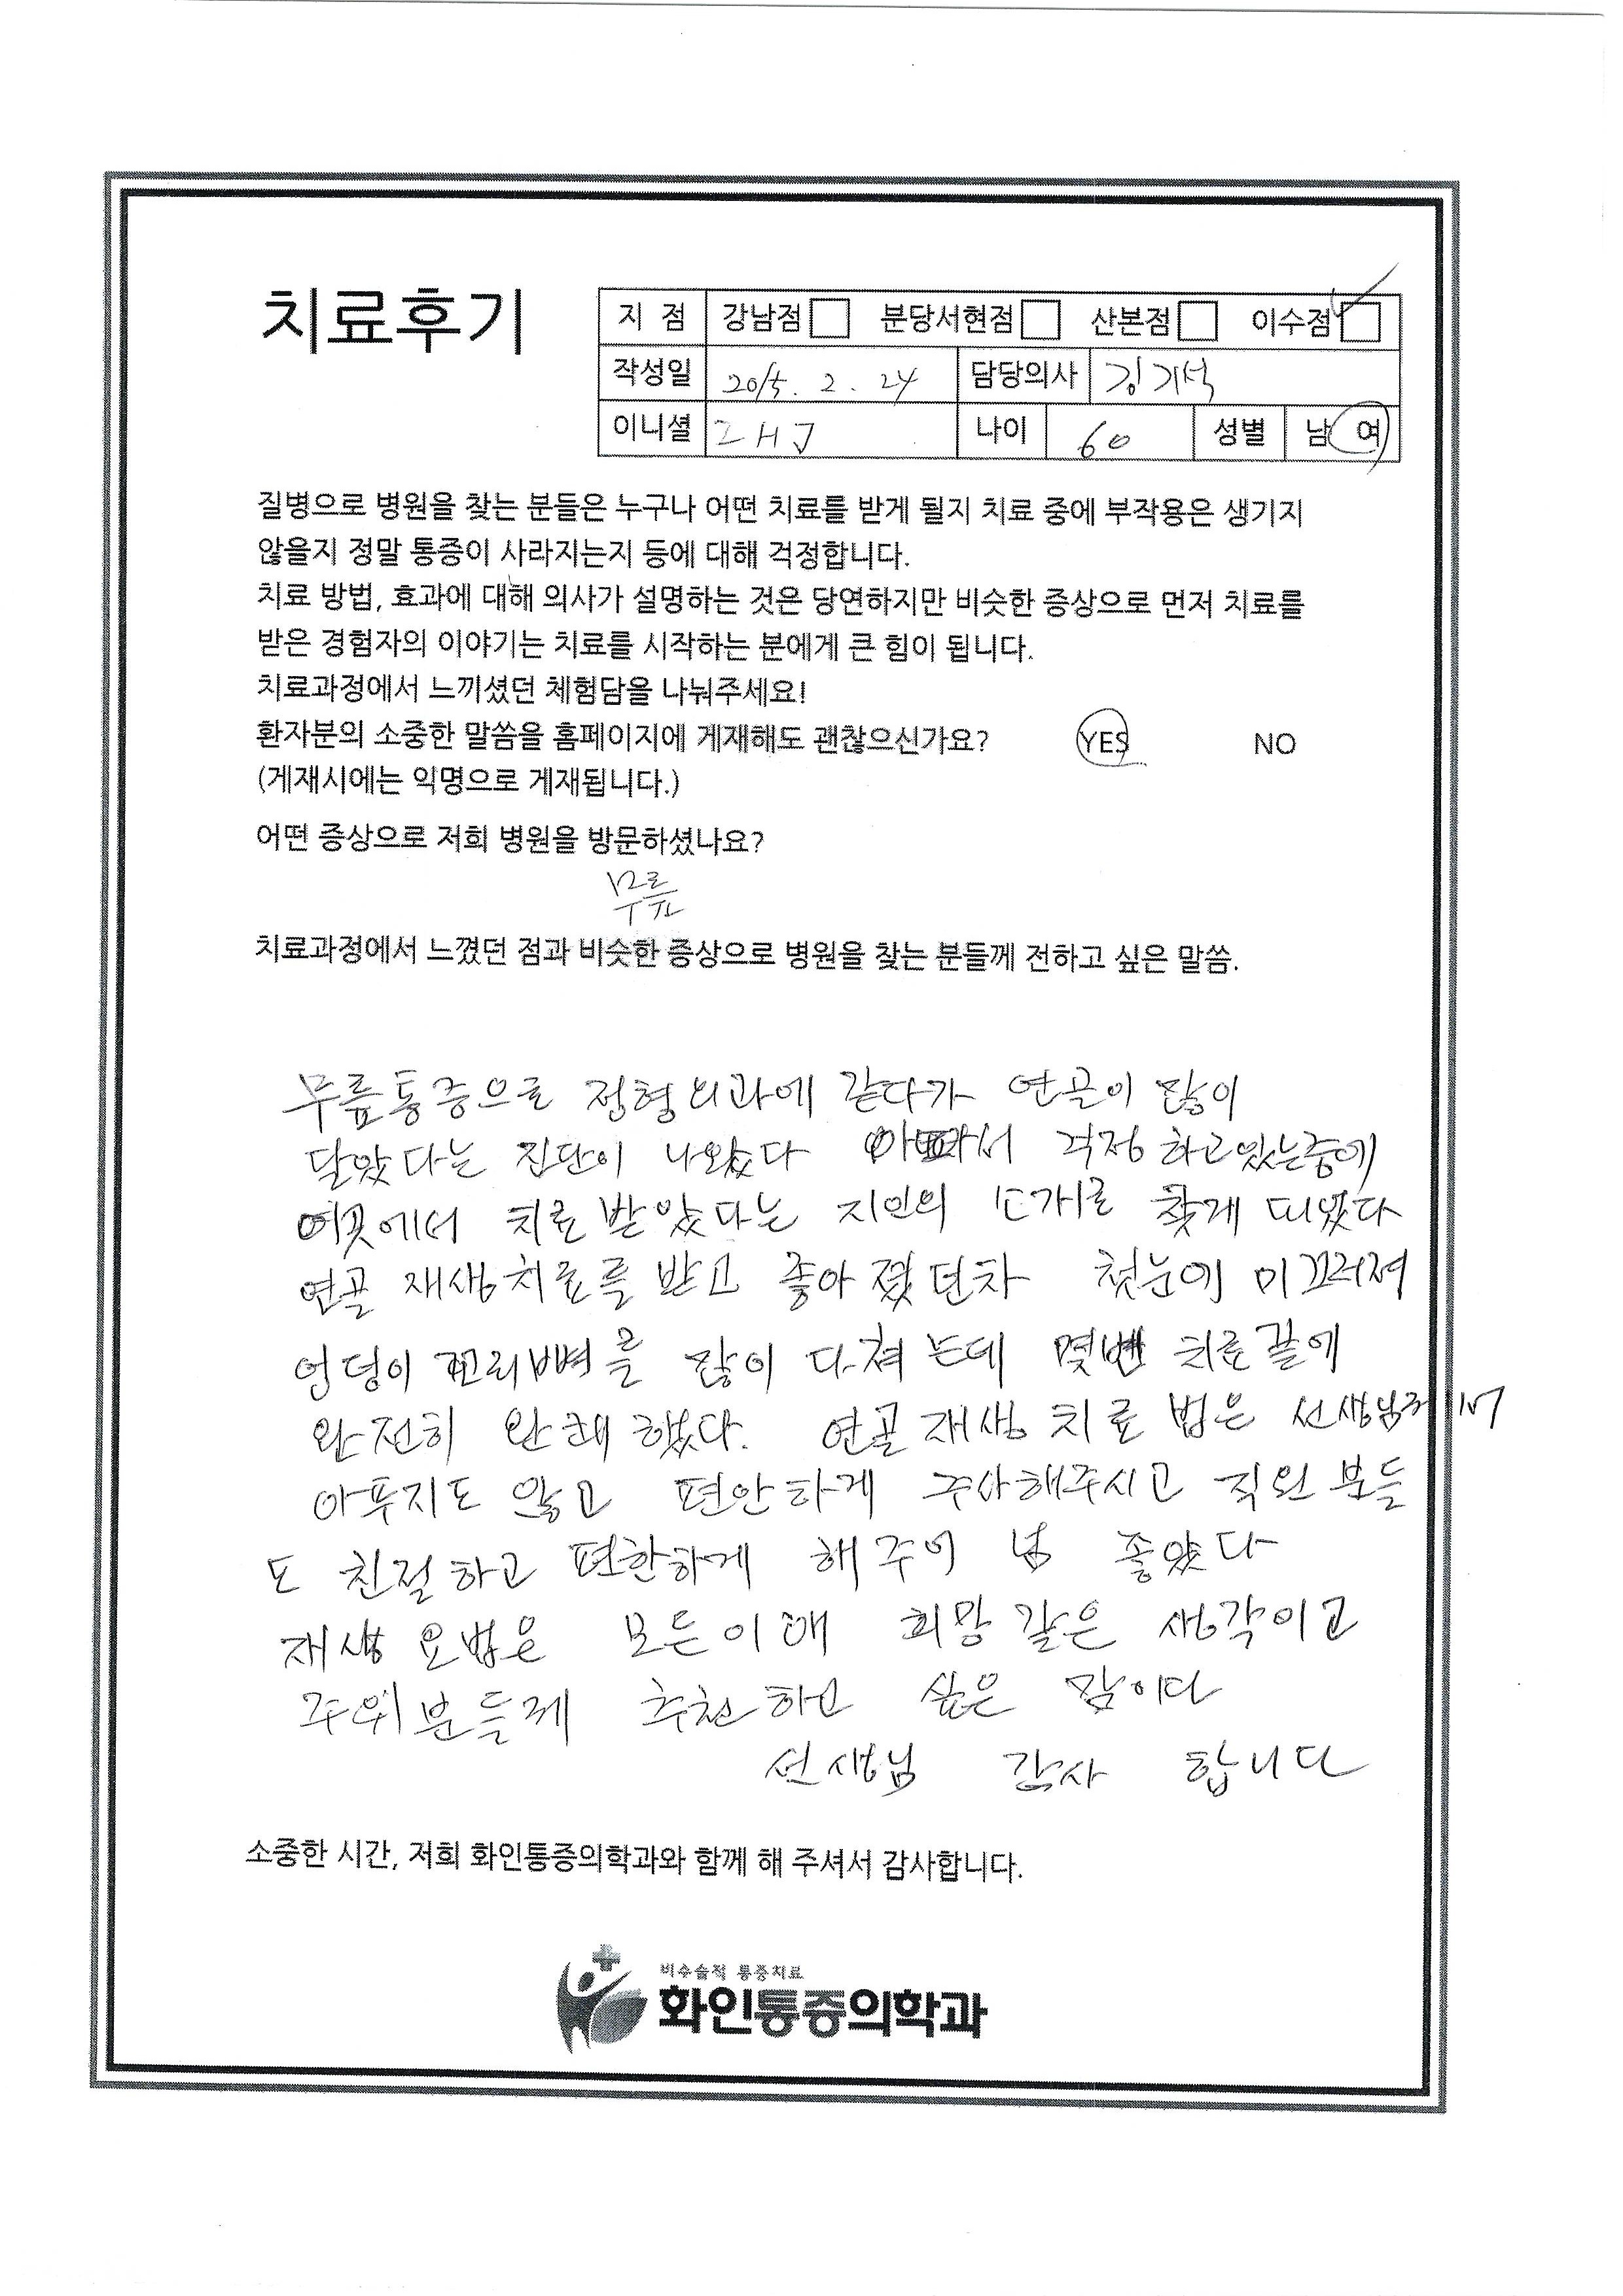 치료후기
지 점 강남점 분당서현점 산본점 이수점
작성일 2015. 2. 24 담당의사 김기석
이니셜 ZHJ 나이 60 성별 남 여
질병으로 병원을 찾는 분들은 누구나 어떤 치료를 받게 될지 치료 중에 부작용은 생기지
않을지 정말 통증이 사라지는지 등에 대해 걱정합니다.
치료 방법, 효과에 대해 의사가 설명하는 것은 당연하지만 비슷한 증상으로 먼저 치료를
받은 경험자의 이야기는 치료를 시작하는 분에게 큰 힘이 됩니다.
치료과정에서 느끼셨던 체험담을 나눠주세요!
환자분의 소중한 말씀을 홈페이지에 게재해도 괜찮으신가요? YES NO
(게재시에는 익명으로 게재됩니다.)
어떤 증상으로 저희 병원을 방문하셨나요?
무릎
치료과정에서 느꼈던 점과 비슷한 증상으로 병원을 찾는 분들께 전하고 싶은 말씀.
무릎통증으로 정형외과에 갇다가 연골이 많이
달았다는 진단이 나왔다 아파서 걱정하고있는중에
여곳에서 치료받았다는 지인의 소개로 찾게 되었다
연골 재생치료를 받고 좋아졌던차 첫눈에 미끄러져
엉덩이 꼬리뼈를 많이 다쳐는데 몇번 치료끝에
완전히 완쾌했다. 연골재생 치료법은 선생님께서
아푸지도 않고 편안하게 주사해주시고 직원분들
도 친절하고 편한하게 해주어 넘 좋았다
재생요법은 모든이애 희망같은 생각이고
주위분들께 추천하고 싶은 맘이다
선생님 감사 합니다
소중한 시간, 저희 화인통증의학과와 함께 해 주셔서 감사합니다.
비수술적 통증치료
화인통증의학과